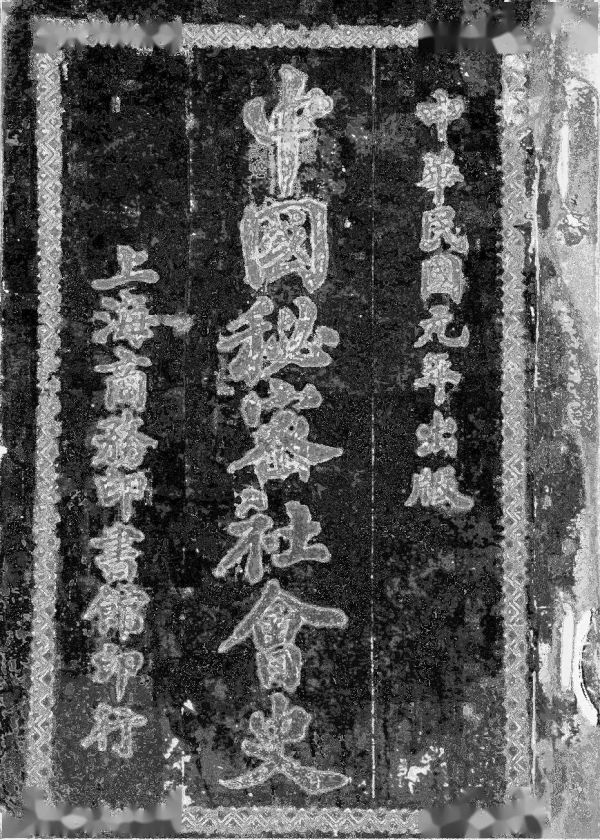 中華民國元年出版
中國秘密社會史
上海商務印書館印行